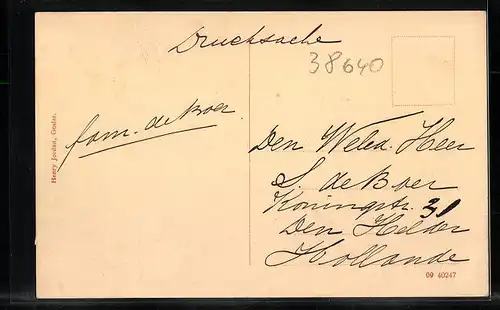 Drucksache
38640
fam. de Boer
Den Weled. Heer
S. de Boer
Koningstr. 31
Den Helder
Hollande
Henry Jordan, Goslar.
09 40247